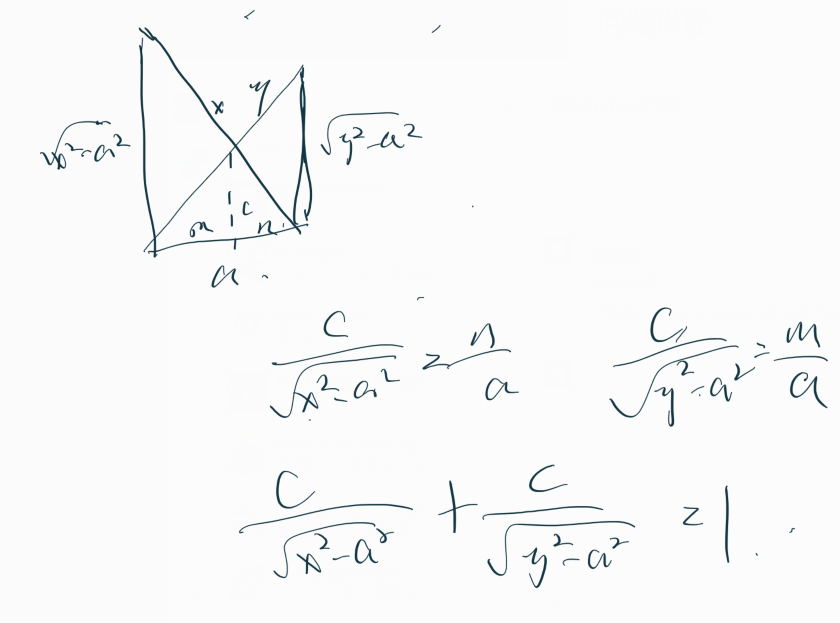 x y
√x²-a² √y²-a²
m c n
a
c/√x²-a² = n/a c/√y²-a² = m/a
c/√x²-a² + c/√y²-a² = 1